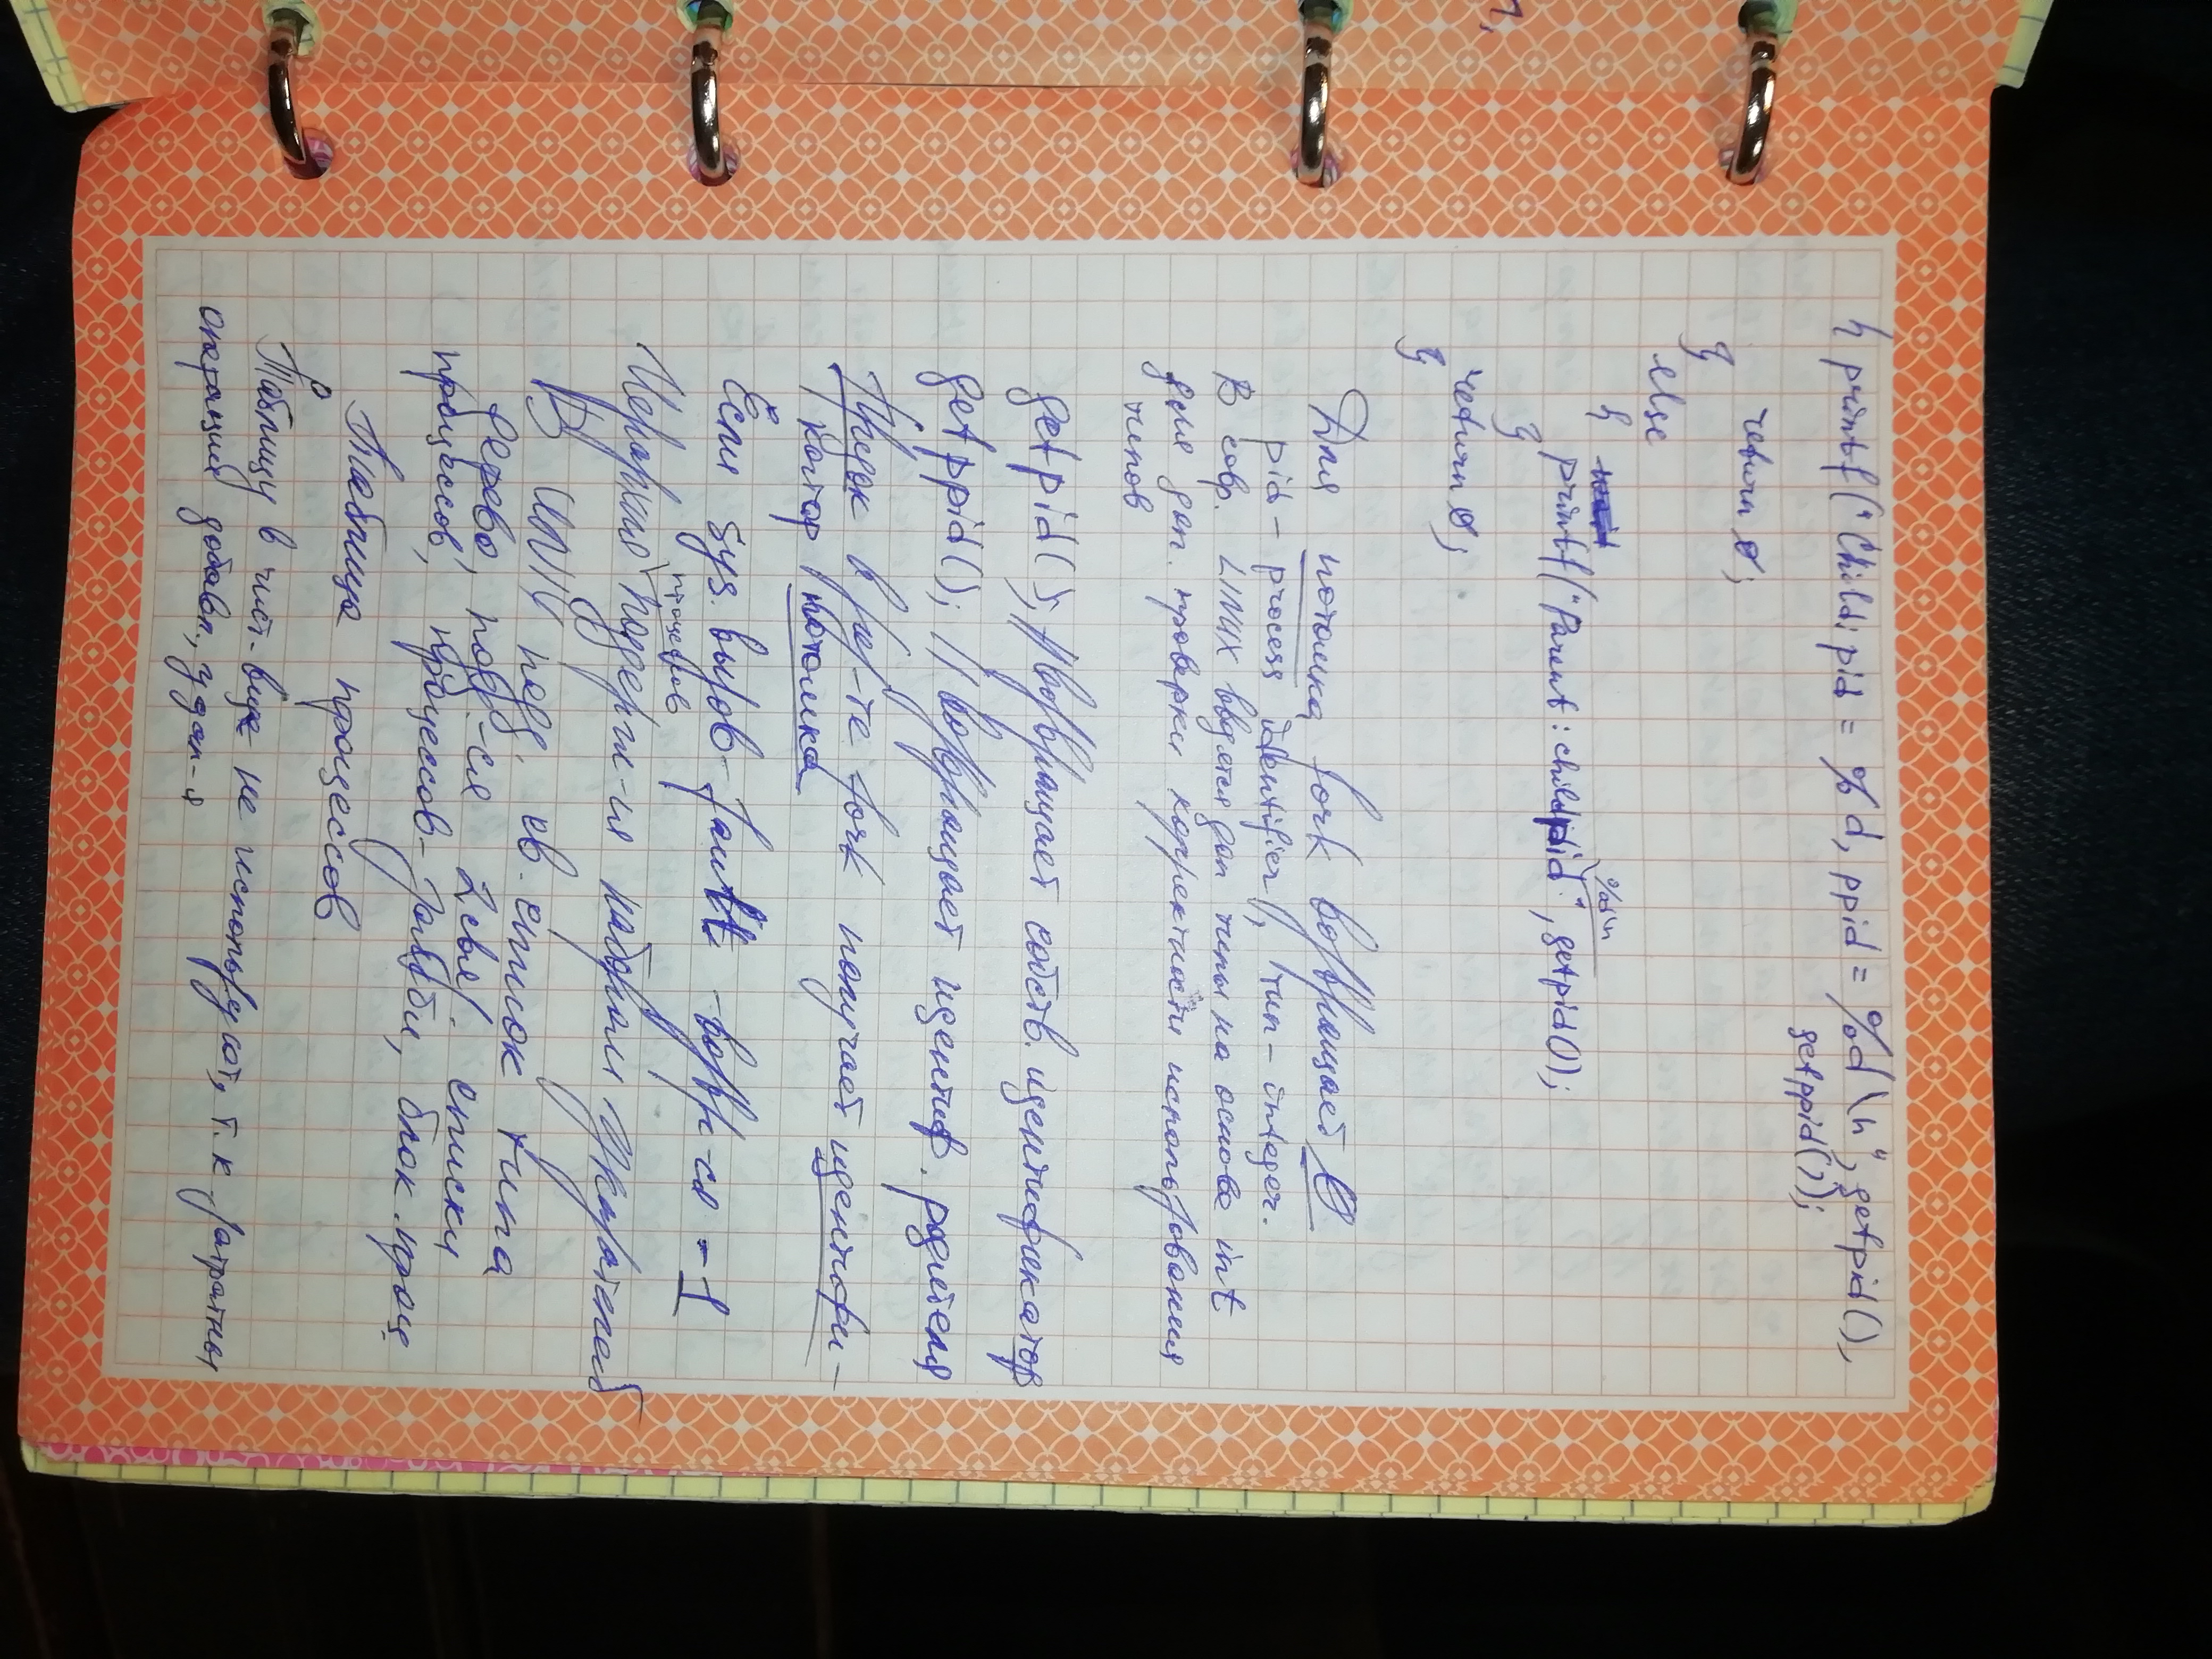 { printf("Child: pid = %d, ppid = %d\n", getpid(),
getppid());
return 0;
}
else
{ wait
%d\n
printf("Parent: childpid", getpid());
}
return 0;
}
Для потомка fork возвращает 0
pid - process identifier, тип - integer.
В совр. LINUX вводятся доп типы на основе int
для доп. проверки корректности использования
типов
getpid(); // возвращает собств. идентификатор
getppid(); // возвращает идентиф. родителя
Предок в рез-те fork получает идентифи-
катор потомка
Если sys. вызов - fault - возвр-ся -1
процессов
Иерархия поддерж-ся набором указателей
В UNIX подд. св. список типа
дерево, подд-ся 2связ. списки
процессов, процессов-зомби, блок. проц.
Таблица процессов
Таблицу в чист. виде не используют, т.к. затратны
операции добавл., удал-я